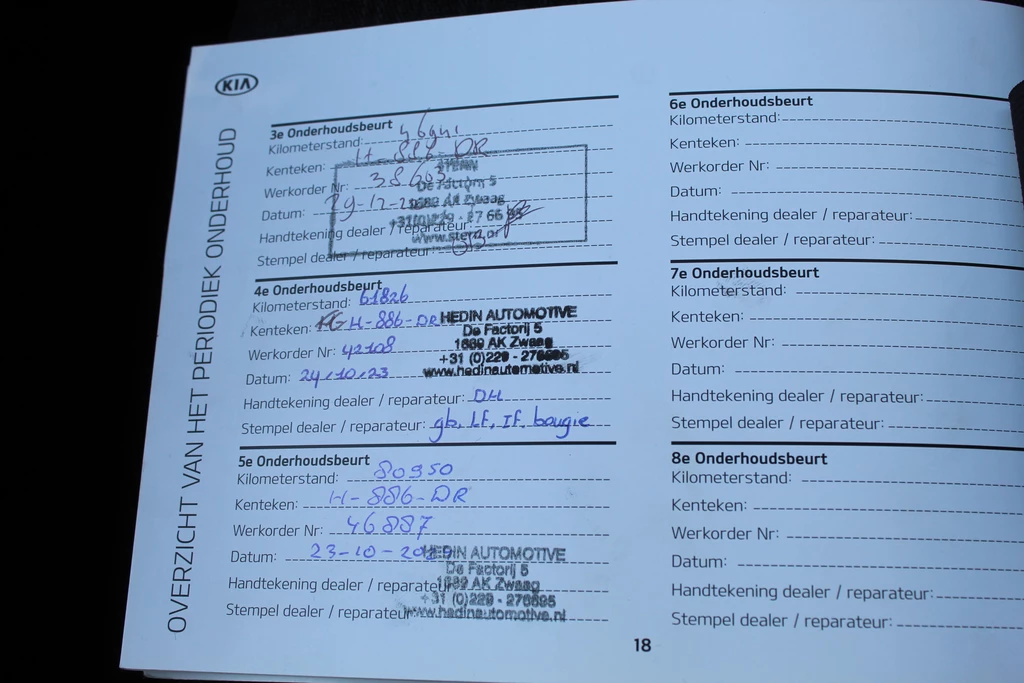 KIA
OVERZICHT VAN HET PERIODIEK ONDERHOUD
3e Onderhoudsbeurt
Kilometerstand:
Kenteken: H-886-DR
Werkorder Nr: 38603
Datum: 29-12-
Handtekening dealer / reparateur:
Stempel dealer / reparateur:
STERN
De Factorij 5
1689 AK Zwaag
4e Onderhoudsbeurt
Kilometerstand: 61826
Kenteken: H-886-DR
Werkorder Nr: 42108
Datum: 24/10/23
Handtekening dealer / reparateur: DH
Stempel dealer / reparateur: gb, LF, IF, bougie
HEDIN AUTOMOTIVE
De Factorij 5
1689 AK Zwaag
+31 (0)229 - 276695
www.hedinautomotive.nl
5e Onderhoudsbeurt
Kilometerstand: 80950
Kenteken: H-886-DR
Werkorder Nr: 46887
Datum: 23-10-
Handtekening dealer / reparateur
Stempel dealer / reparateur
HEDIN AUTOMOTIVE
De Factorij 5
1689 AK Zwaag
+31 (0)229 - 276695
www.hedinautomotive.nl
6e Onderhoudsbeurt
Kilometerstand:
Kenteken:
Werkorder Nr:
Datum:
Handtekening dealer / reparateur:
Stempel dealer / reparateur:
7e Onderhoudsbeurt
Kilometerstand:
Kenteken:
Werkorder Nr:
Datum:
Handtekening dealer / reparateur:
Stempel dealer / reparateur:
8e Onderhoudsbeurt
Kilometerstand:
Kenteken:
Werkorder Nr:
Datum:
Handtekening dealer / reparateur:
Stempel dealer / reparateur:
18